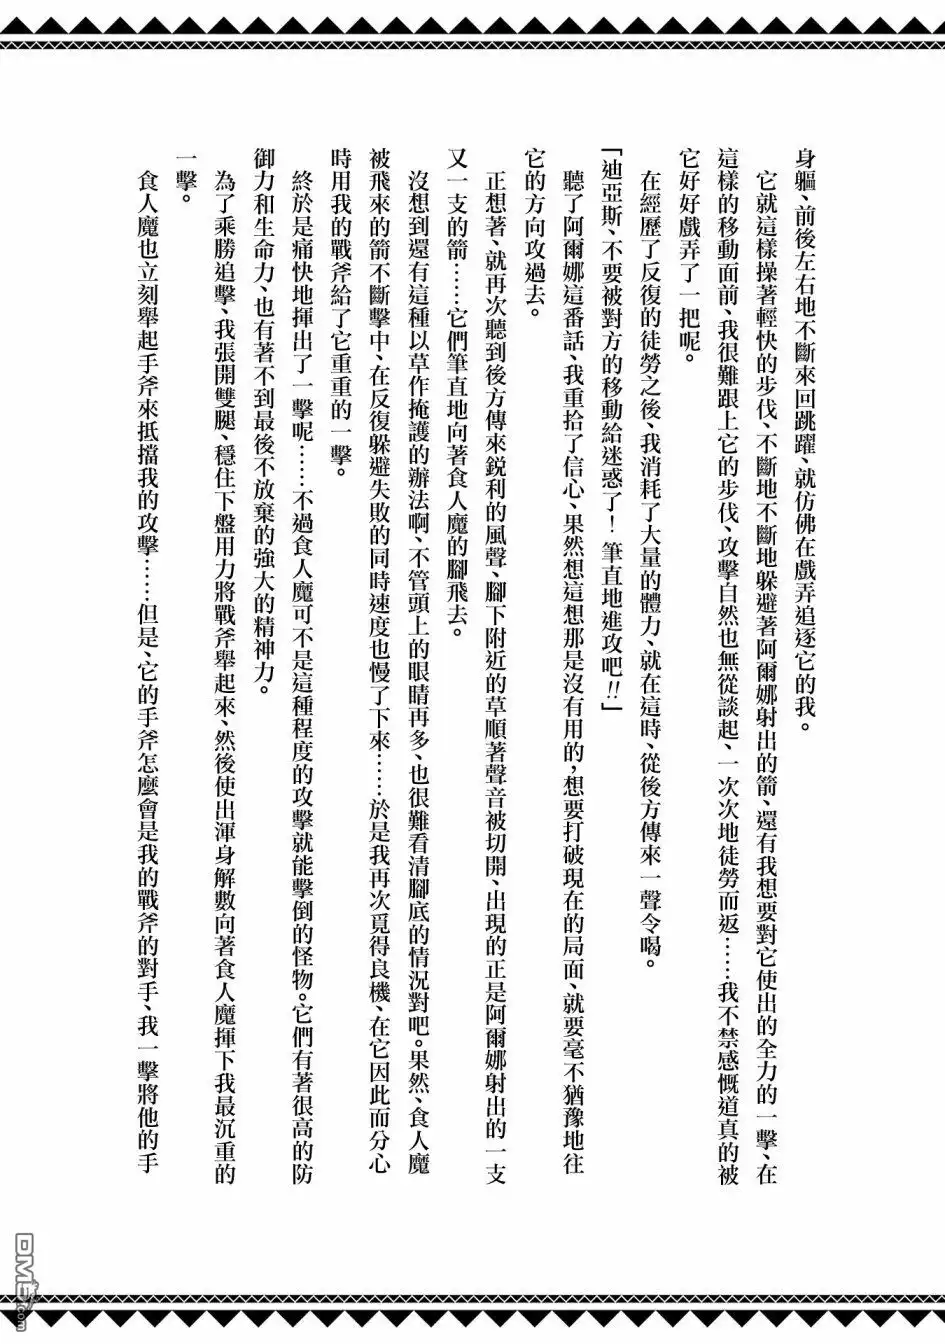 身軀、前後左右地不斷來回跳躍、就仿佛在戲弄追逐它的我。
它就這樣操著輕快的步伐、不斷地不斷地躲避著阿爾娜射出的箭、還有我想要對它使出的全力的一擊、在
這樣的移動面前、我很難跟上它的步伐、攻擊自然也無從談起、一次次地徒勞而返……我不禁感慨道真的被
它好好戲弄了一把呢。
在經歷了反復的徒勞之後、我消耗了大量的體力、就在這時、從後方傳來一聲令喝。
「迪亞斯、不要被對方的移動給迷惑了！筆直地進攻吧!!」
聽了阿爾娜這番話、我重拾了信心、果然想這想那是沒有用的，想要打破現在的局面、就要毫不猶豫地往
它的方向攻過去。
正想著、就再次聽到後方傳來銳利的風聲、腳下附近的草順著聲音被切開、出現的正是阿爾娜射出的一支
又一支的箭……它們筆直地向著食人魔的腳飛去。
沒想到還有這種以草作掩護的辦法啊、不管頭上的眼睛再多、也很難看清腳底的情況對吧。果然、食人魔
被飛來的箭不斷擊中、在反復躲避失敗的同時速度也慢了下來……於是我再次覓得良機、在它因此而分心
時用我的戰斧給了它重重的一擊。
終於是痛快地揮出了一擊呢……不過食人魔可不是這種程度的攻擊就能擊倒的怪物。它們有著很高的防
御力和生命力、也有著不到最後不放棄的強大的精神力。
為了乘勝追擊、我張開雙腿、穩住下盤用力將戰斧舉起來、然後使出渾身解數向著食人魔揮下我最沉重的
一擊。
食人魔也立刻舉起手斧來抵擋我的攻擊……但是、它的手斧怎麼會是我的戰斧的對手、我一擊將他的手
DM5.com